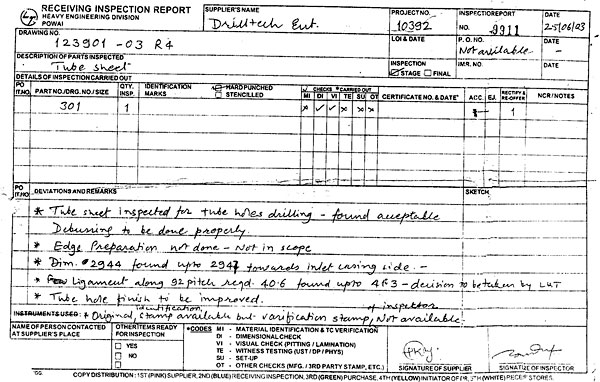 RECEIVING INSPECTION REPORT
HEAVY ENGINEERING DIVISION
POWAI
SUPPLIER'S NAME
Drilltech Ent.
PROJECT NO.
10392
INSPECTION REPORT
NO. 9911
DATE
25/06/03
DRAWING NO.
123901 -03 R4
LOI & DATE
P. O. NO.
Not available
DATE
-
DESCRIPTION OF PARTS INSPECTED
Tube sheet
INSPECTION
STAGE FINAL
IMR. NO.
DATE
-
DETAILS OF INSPECTION CARRIED OUT
PO IT.NO. PART NO./DRG. NO./SIZE QTY. INSP. IDENTIFICATION MARKS HARD PUNCHED STENCILLED CHECKS CARRIED OUT MI DI VI TE SU OT CERTIFICATE NO. & DATE ACC. RECTIFY & RE-OFFER NCR/NOTES
301 1 x ✓ ✓ x x x - 1
PO IT.NO. DEVIATIONS AND REMARKS SKETCH
* Tube sheet inspected for tube holes drilling - found acceptable
Deburring to be done properly.
* Edge Preparation not done - Not in scope
* Dim. 2944 found upto 2947 towards inlet casing side. -
* Ligament along 92 pitch reqd. 40.6 found upto 41.3 - decision to be taken by L&T
* Tube hole finish to be improved.
INSTRUMENTS USED : * Original identification stamp available but varification stamp of inspector Not available.
NAME OF PERSON CONTACTED AT SUPPLIER'S PLACE
OTHER ITEMS READY FOR INSPECTION
YES
NO
*CODES MI - MATERIAL IDENTIFICATION & TC VERIFICATION
DI - DIMENSIONAL CHECK
VI - VISUAL CHECK (PITTING / LAMINATION)
TE - WITNESS TESTING (UST / DP / PHYS)
SU - SET-UP
OT - OTHER CHECKS (MFG. / 3RD PARTY STAMP, ETC.)
SIGNATURE OF SUPPLIER
SIGNATURE OF INSPECTOR
COPY DISTRIBUTION : 1ST (PINK) SUPPLIER, 2ND (BLUE) RECEIVING INSPECTION, 3RD (GREEN) PURCHASE, 4TH (YELLOW) INITIATOR OF